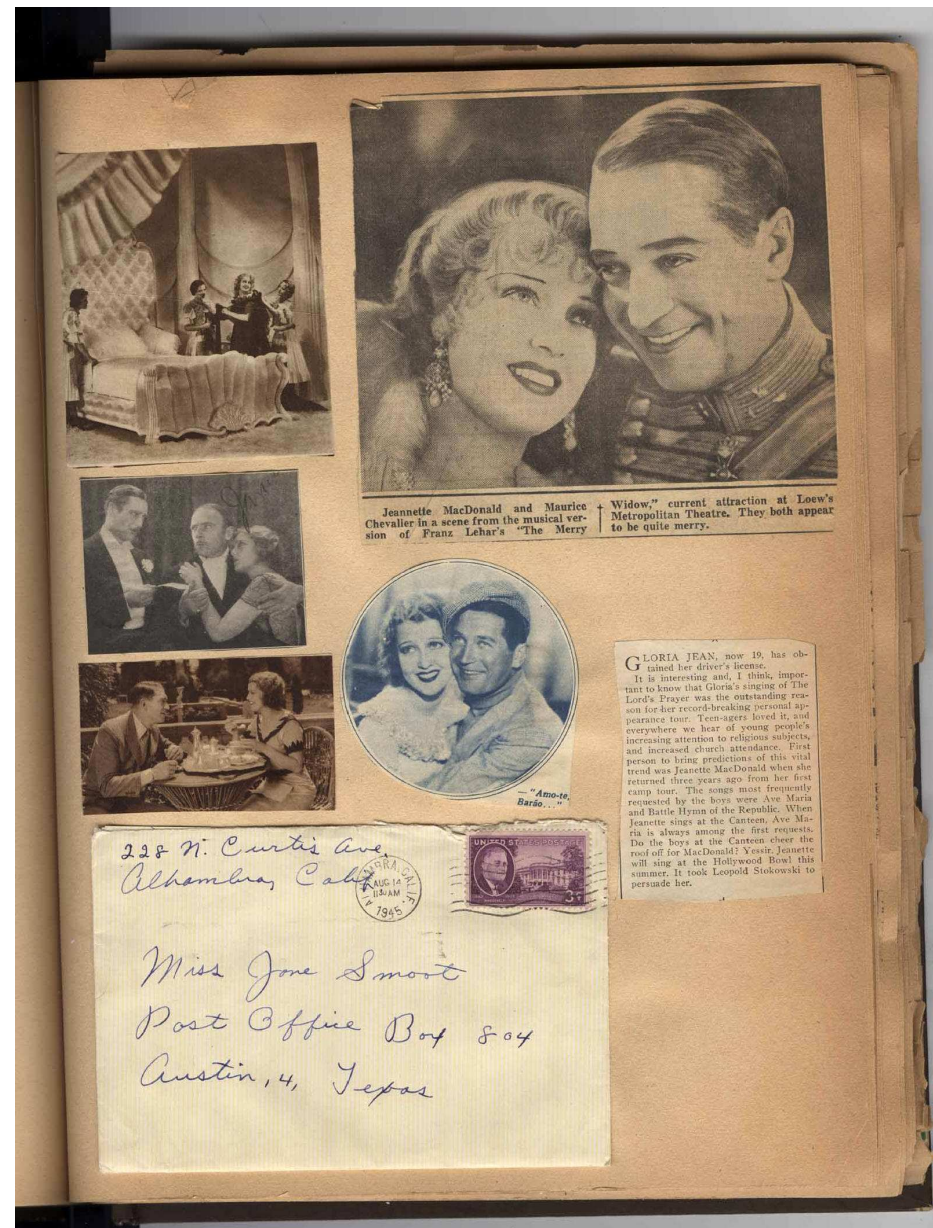 Jeannette MacDonald and Maurice
Chevalier in a scene from the musical ver-
sion of Franz Lehar's "The Merry
Widow," current attraction at Loew's
Metropolitan Theatre. They both appear
to be quite merry.
— "Amo-te,
Barão..."
GLORIA JEAN, now 19, has ob-
tained her driver's license.
It is interesting and, I think, impor-
tant to know that Gloria's singing of The
Lord's Prayer was the outstanding rea-
son for her record-breaking personal ap-
pearance tour. Teen-agers loved it, and
everywhere we hear of young people's
increasing attention to religious subjects,
and increased church attendance. First
person to bring predictions of this vital
trend was Jeanette MacDonald when she
returned three years ago from her first
camp tour. The songs most frequently
requested by the boys were Ave Maria
and Battle Hymn of the Republic. When
Jeanette sings at the Canteen, Ave Ma-
ria is always among the first requests.
Do the boys at the Canteen cheer the
roof off for MacDonald? Yessir. Jeanette
will sing at the Hollywood Bowl this
summer. It took Leopold Stokowski to
persuade her.
228 N. Curtis Ave,
Alhambra, Calif
ALHAMBRA, CALIF.
AUG 14
AM
1945
UNITED STATES POSTAGE
3¢
Miss Jane Smoot
Post Office Box 804
Austin, 4, Texas